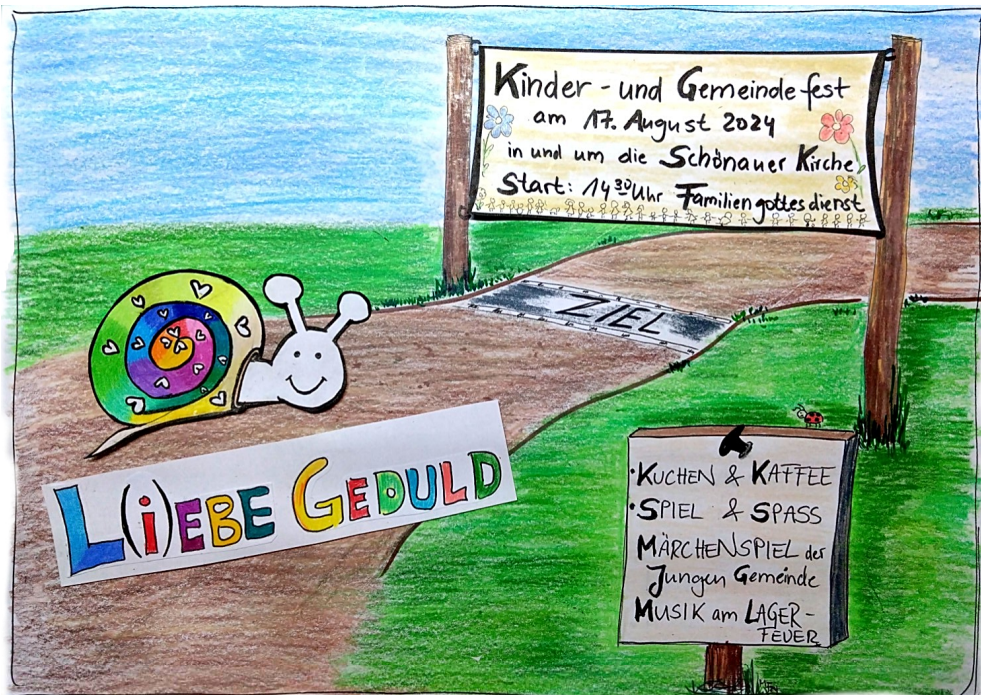 Kinder - und Gemeindefest
am 17. August 2024
in und um die Schönauer Kirche
Start: 14³⁰ Uhr Familiengottesdienst
ZIEL
L(i)EBE GEDULD
· KUCHEN & KAFFEE
· SPIEL & SPASS
MÄRCHENSPIEL der
Jungen Gemeinde
MUSIK am LAGER-
FEUER